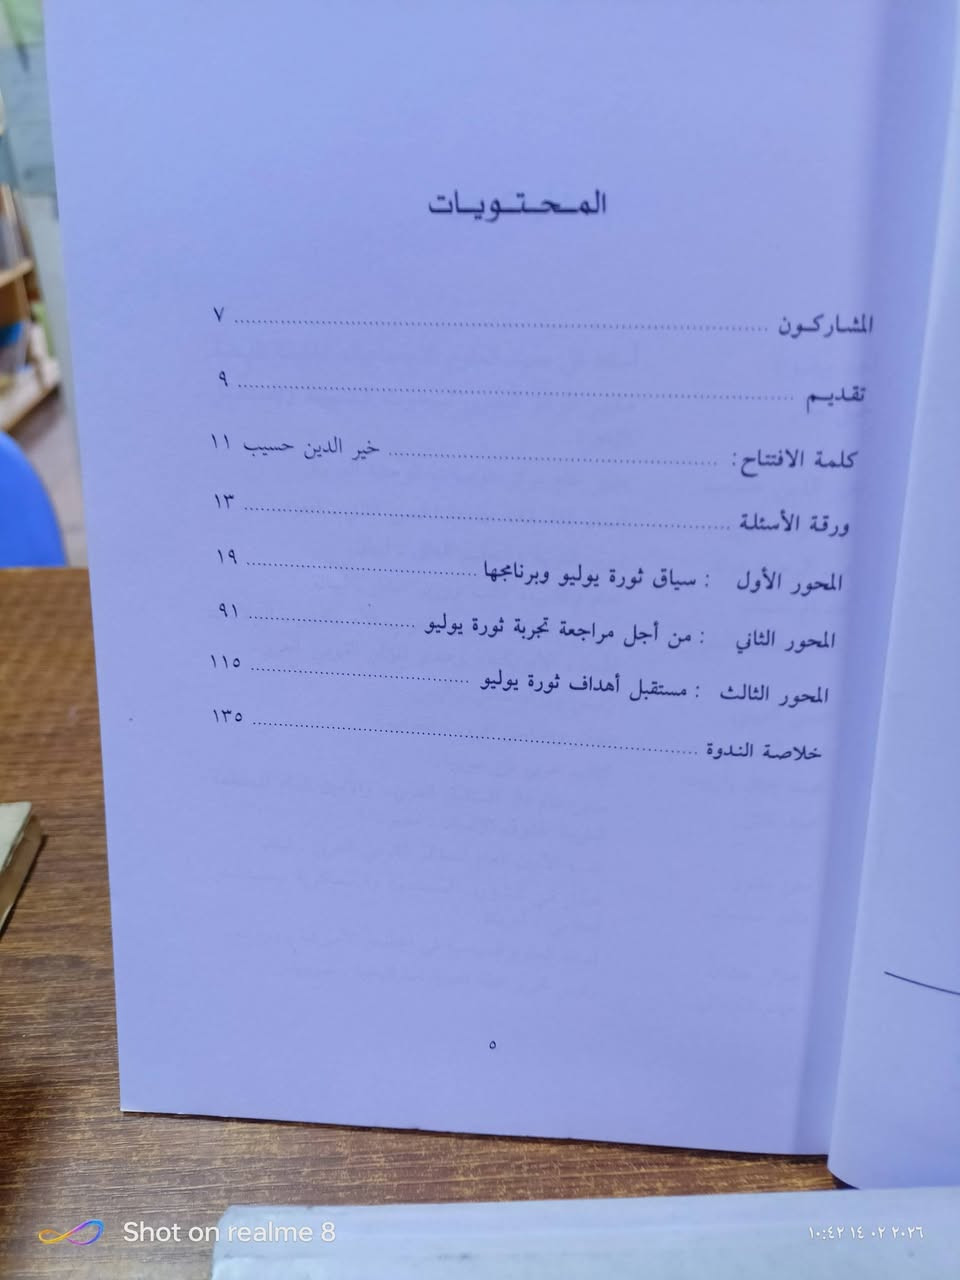 المـحـتـويـات
المشاركـون ................ ٧
تقـديـم ................ ٩
كلمة الافتتاح: ................ خير الدين حسيب ١١
ورقة الأسئلة ................ ١٣
المحور الأول : سياق ثورة يوليو وبرنامجها ................ ١٩
المحور الثاني : من أجل مراجعة تجربة ثورة يوليو ................ ٩١
المحور الثالث : مستقبل أهداف ثورة يوليو ................ ١١٥
خلاصة الندوة ................ ١٣٥
٥
Shot on realme 8
٢٠٢٦ ٠٢ ١٤ ١٠:٤٢